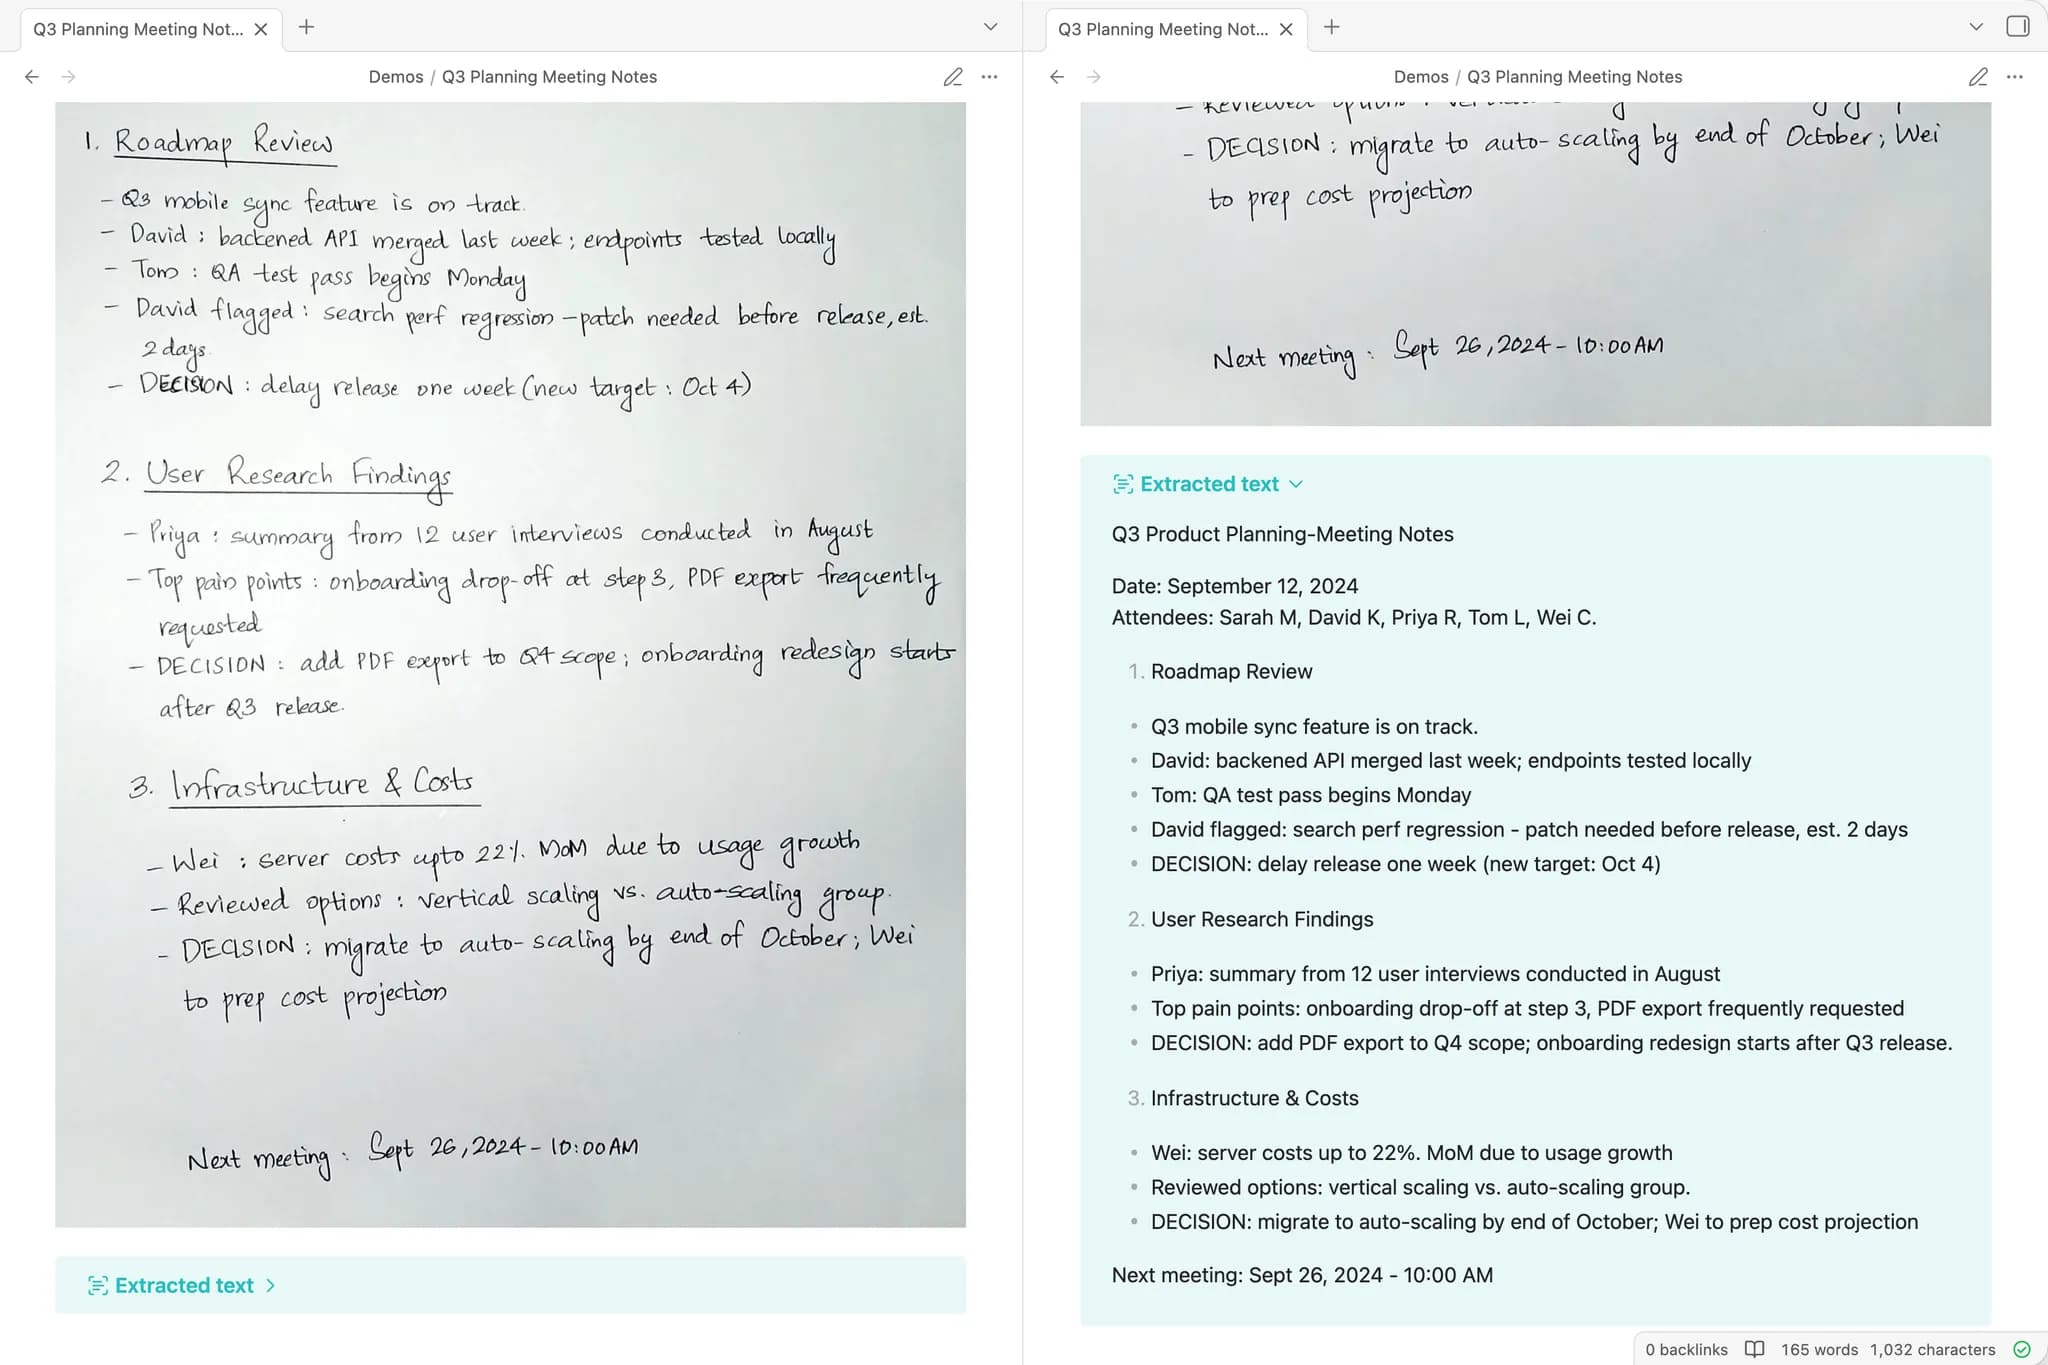 Q3 Planning Meeting Not...
Demos / Q3 Planning Meeting Notes
1. Roadmap Review
- Q3 mobile sync feature is on track.
- David : backened API merged last week ; endpoints tested locally
- Tom : QA test pass begins Monday
- David flagged : search perf regression - patch needed before release, est.
2 days.
- DECISION : delay release one week (new target : Oct 4)
2. User Research Findings
- Priya : summary from 12 user interviews conducted in August
- Top pain points : onboarding drop-off at step 3, PDF export frequently
requested
- DECISION : add PDF export to Q4 scope ; onboarding redesign starts
after Q3 release.
3. Infrastructure & Costs
- Wei : server costs upto 22%. MoM due to usage growth
- Reviewed options : vertical scaling vs. auto-scaling group.
- DECISION : migrate to auto-scaling by end of October ; Wei
to prep cost projection
Next meeting : Sept 26, 2024 - 10:00 AM
Extracted text
Q3 Planning Meeting Not...
Demos / Q3 Planning Meeting Notes
- Reviewed options :
- DECISION : migrate to auto-scaling by end of October ; Wei
to prep cost projection
Next meeting : Sept 26, 2024 - 10:00 AM
Extracted text
Q3 Product Planning-Meeting Notes
Date: September 12, 2024
Attendees: Sarah M, David K, Priya R, Tom L, Wei C.
1. Roadmap Review
• Q3 mobile sync feature is on track.
• David: backened API merged last week; endpoints tested locally
• Tom: QA test pass begins Monday
• David flagged: search perf regression - patch needed before release, est. 2 days
• DECISION: delay release one week (new target: Oct 4)
2. User Research Findings
• Priya: summary from 12 user interviews conducted in August
• Top pain points: onboarding drop-off at step 3, PDF export frequently requested
• DECISION: add PDF export to Q4 scope; onboarding redesign starts after Q3 release.
3. Infrastructure & Costs
• Wei: server costs up to 22%. MoM due to usage growth
• Reviewed options: vertical scaling vs. auto-scaling group.
• DECISION: migrate to auto-scaling by end of October; Wei to prep cost projection
Next meeting: Sept 26, 2024 - 10:00 AM
0 backlinks 165 words 1,032 characters